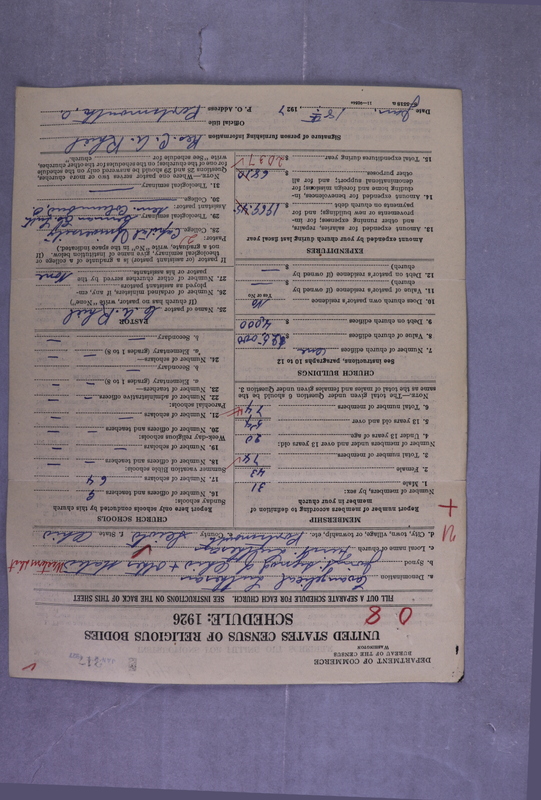 DEPARTMENT OF COMMERCE
BUREAU OF THE CENSUS
WASHINGTON
UNITED STATES CENSUS OF RELIGIOUS BODIES
SCHEDULE: 1926
FILL OUT A SEPARATE SCHEDULE FOR EACH CHURCH. SEE INSTRUCTIONS ON THE BACK OF THIS SHEET
a. Denomination Evangelical Lutheran
b. Synod Joint Synod of Ohio + Other States Western Dist
c. Local name of church
d. City, town, village, or township, etc. Portsmouth County Scioto State Ohio
MEMBERSHIP
Report here number of members according to definition of member in your church
Number of members, by sex:
1. Male 31
2. Female 43
3. Total number of members 74
Number of members under and over 13 years old:
4. Under 13 years of age 20
5. 13 years old and over 54
6. Total number of members 74
NOTE.—The total given under Question 6 should be the same as the total of males and females given under Question 3.
CHURCH BUILDINGS
See instructions, paragraphs 10 to 12
7. Number of church edifices one
8. Value of church edifices $ 25,000
9. Debt on church edifices $ 4,000
10. Does church own pastor's residence No
Yes or No
11. Value of pastor's residence (if owned by church) $ —
12. Debt on pastor's residence (if owned by church) $ —
EXPENDITURES
Amount expended by your church during last fiscal year
13. Amount expended for salaries, repairs, and other running expenses; for improvements or new buildings; and for payments on church debt
14. Amount expended for benevolences, including home and foreign missions; for denominational support; and for all other purposes
15. Total expenditures during year
CHURCH SCHOOLS
Report here only schools conducted by this church
Sunday schools:
16. Number of officers and teachers 9
17. Number of scholars 64
Summer vacation Bible schools:
18. Number of officers and teachers —
19. Number of scholars —
Week-day religious schools:
20. Number of officers and teachers —
21. Number of scholars —
Parochial schools:
22. Number of administrative officers —
23. Number of teachers—
a. Elementary (grades 1 to 8) —
b. Secondary —
24. Number of scholars—
a. Elementary (grades 1 to 8) —
b. Secondary —
PASTOR
25. Name of pastor
(If church has no pastor, write "None")
26. Number of ordained assistants, if any, employed as assistant pastors
27. Number of other churches served by the pastor or his assistants None
If pastor (or assistant) is a graduate of a college or theological seminary, give name of institution below. (If not a graduate, write "No" in the space indicated.)
Pastor:
28. College Capital University
29. Theological seminary
30. College
31. Theological seminary —
NOTE.—Where one pastor serves two or more churches, Questions 28 and 29 should be answered only on the Schedule for one of the churches; on the schedules for the other churches, write "See schedule for church."
Signature of person furnishing information
Official title
P. O. Address Portsmouth, O.
Date Jan. 18th 1927